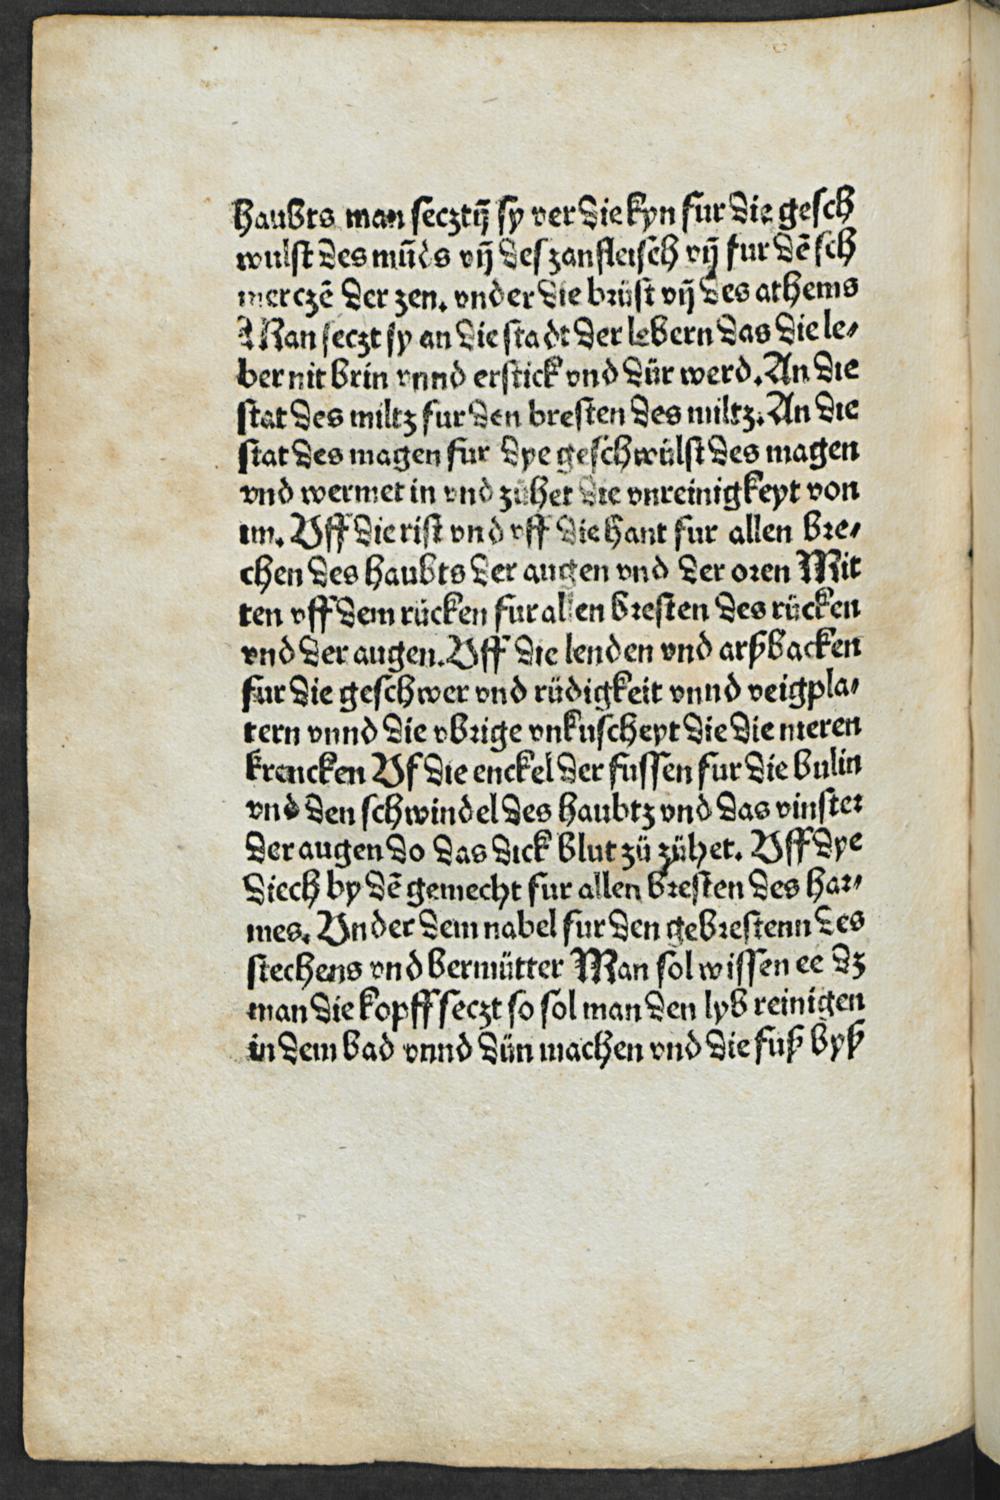 haubts man secztṽ sy ver die kyn fur die gesch
wulst des mūds vṽ des zanfleisch vṽ fur dē sch
merczē der zen. vnder die brüst vṽ des athems
Man seczt sy an die stadt der lebern das die le⸗
ber nit brin vnnd erstick vnd dür werd. An die
stat des miltz fur den bresten des miltz. An die
stat des magen fur dye geschwülst des magen
vnd wermet in vnd zühet die vnreinigkeyt von
im. Vff die rist vnd vff die hant fur allen bre⸗
chen des haubts der augen vnd der oren Mit
ten vff dem rücken fur allen bresten des rücken
vnd der augen. Vff die lenden vnd arßbacken
fur die geschwer vnd rüdigkeit vnnd veigpla⸗
tern vnnd die vbrige vnkuscheyt die die nieren
krencken Vf die enckel der fussen fur die bulin
vnd den schwindel des haubtz vnd das vinster
der augen do das dick blut zü zühet. Vff dye
diech by dē gemecht fur allen bresten des har⸗
mes. Vnder dem nabel fur den gebrestenn des
stechens vnd bermütter Man sol wissen ee dz
man die kopff seczt so sol man den lyb reinigen
in dem bad vnnd dün machen vnd die fuß byß